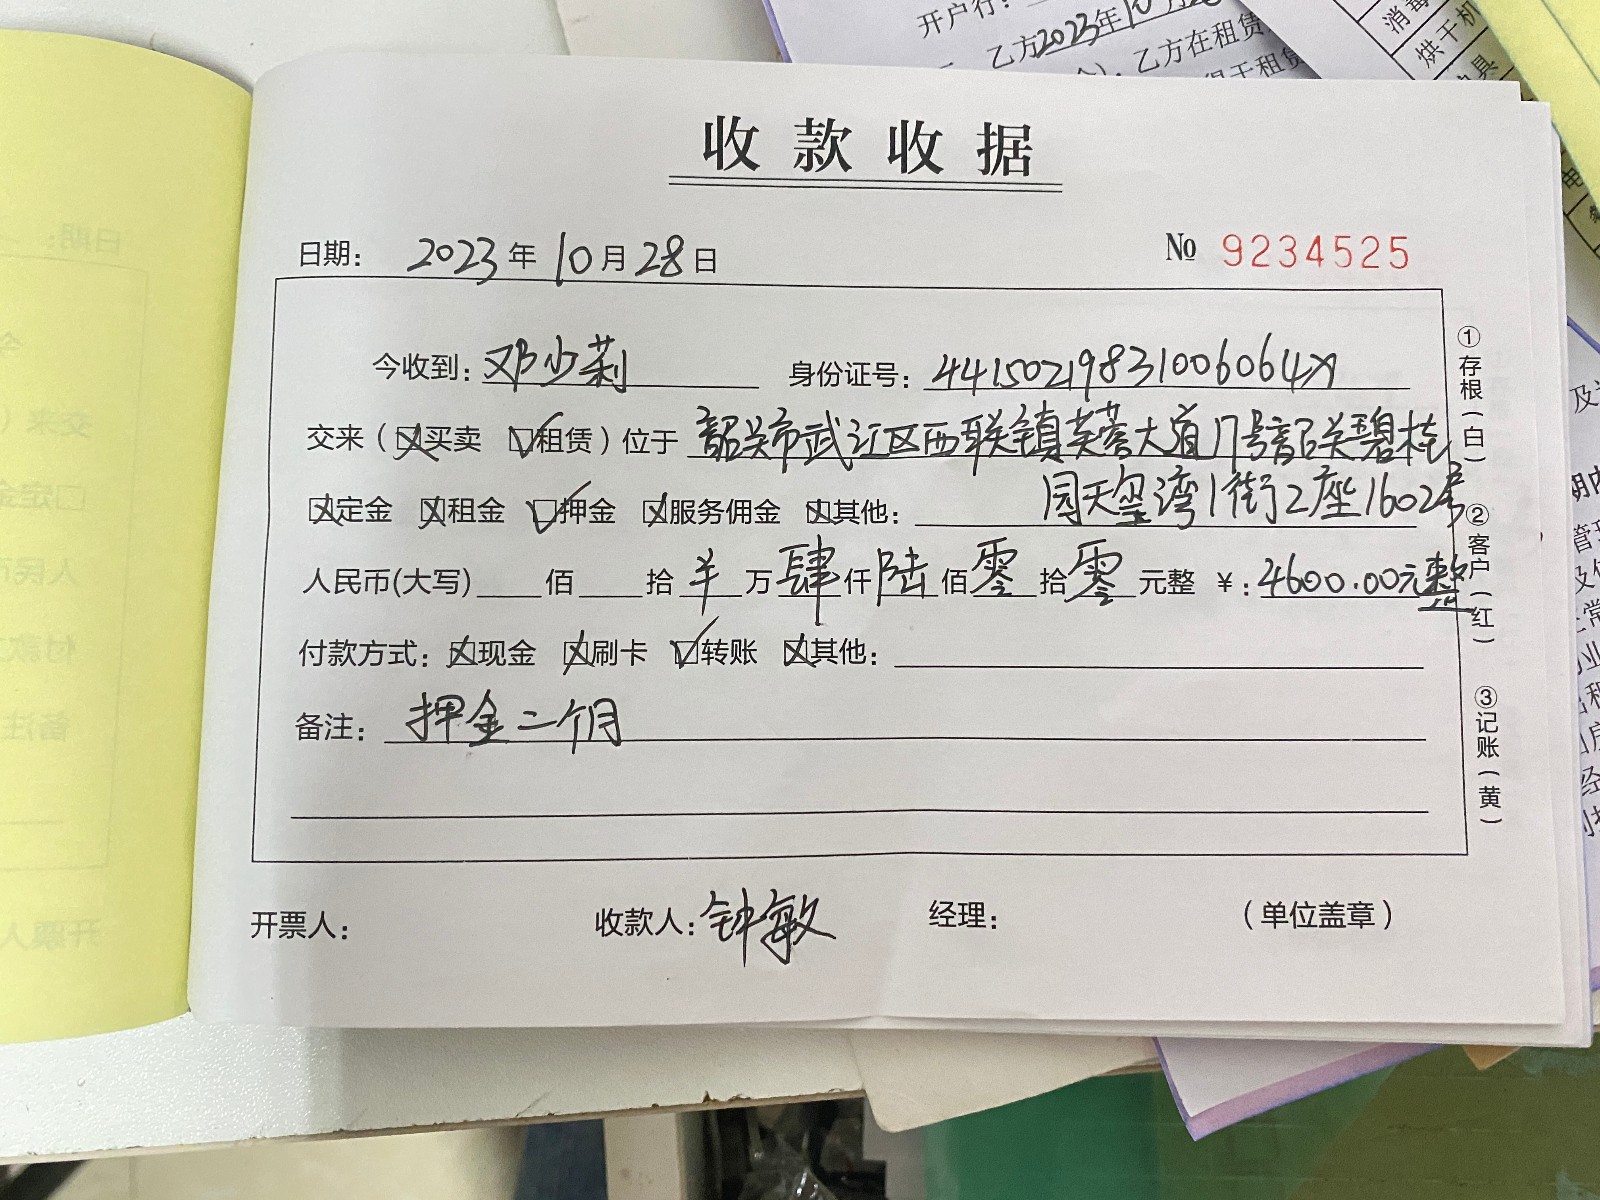 开户行:
乙方2023年10月28
乙方在租赁
收款收据
日期: 2023年10月28日
№ 9234525
今收到: 邓少莉 身份证号: 44150219831006064X
交来(☒买卖 ☑租赁)位于 韶关市武江区西联镇芙蓉大道17号韶关碧桂
园天玺湾1街2座1602号
☒定金 ☒租金 ☑押金 ☒服务佣金 ☒其他:
人民币(大写) 佰 拾 羊 万 肆 仟 陆 佰 零 拾 零 元整 ¥: 4600.00元整
付款方式: ☒现金 ☒刷卡 ☑转账 ☒其他:
备注: 押金二个月
开票人: 收款人: 钟敏 经理: (单位盖章)
①存根(白)
②客户(红)
③记账(黄)
烘干机